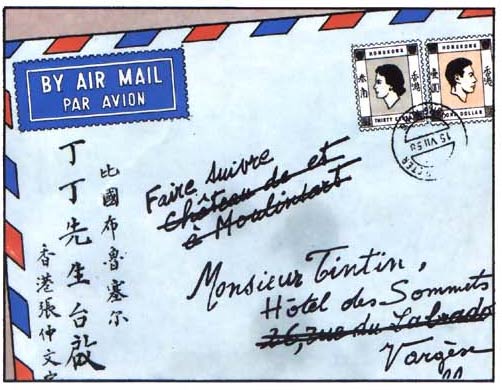 BY AIR MAIL
PAR AVION
HONGKONG
香港
HONGKONG
香港
DOLLAR
15 VII 58
比國布魯塞尔
丁丁先生台啟
香港張仲文
Faire suivre
Château de et
à Moulinsart
Monsieur Tintin,
Hôtel des Sommets
26, rue du Labrado
Vargèse